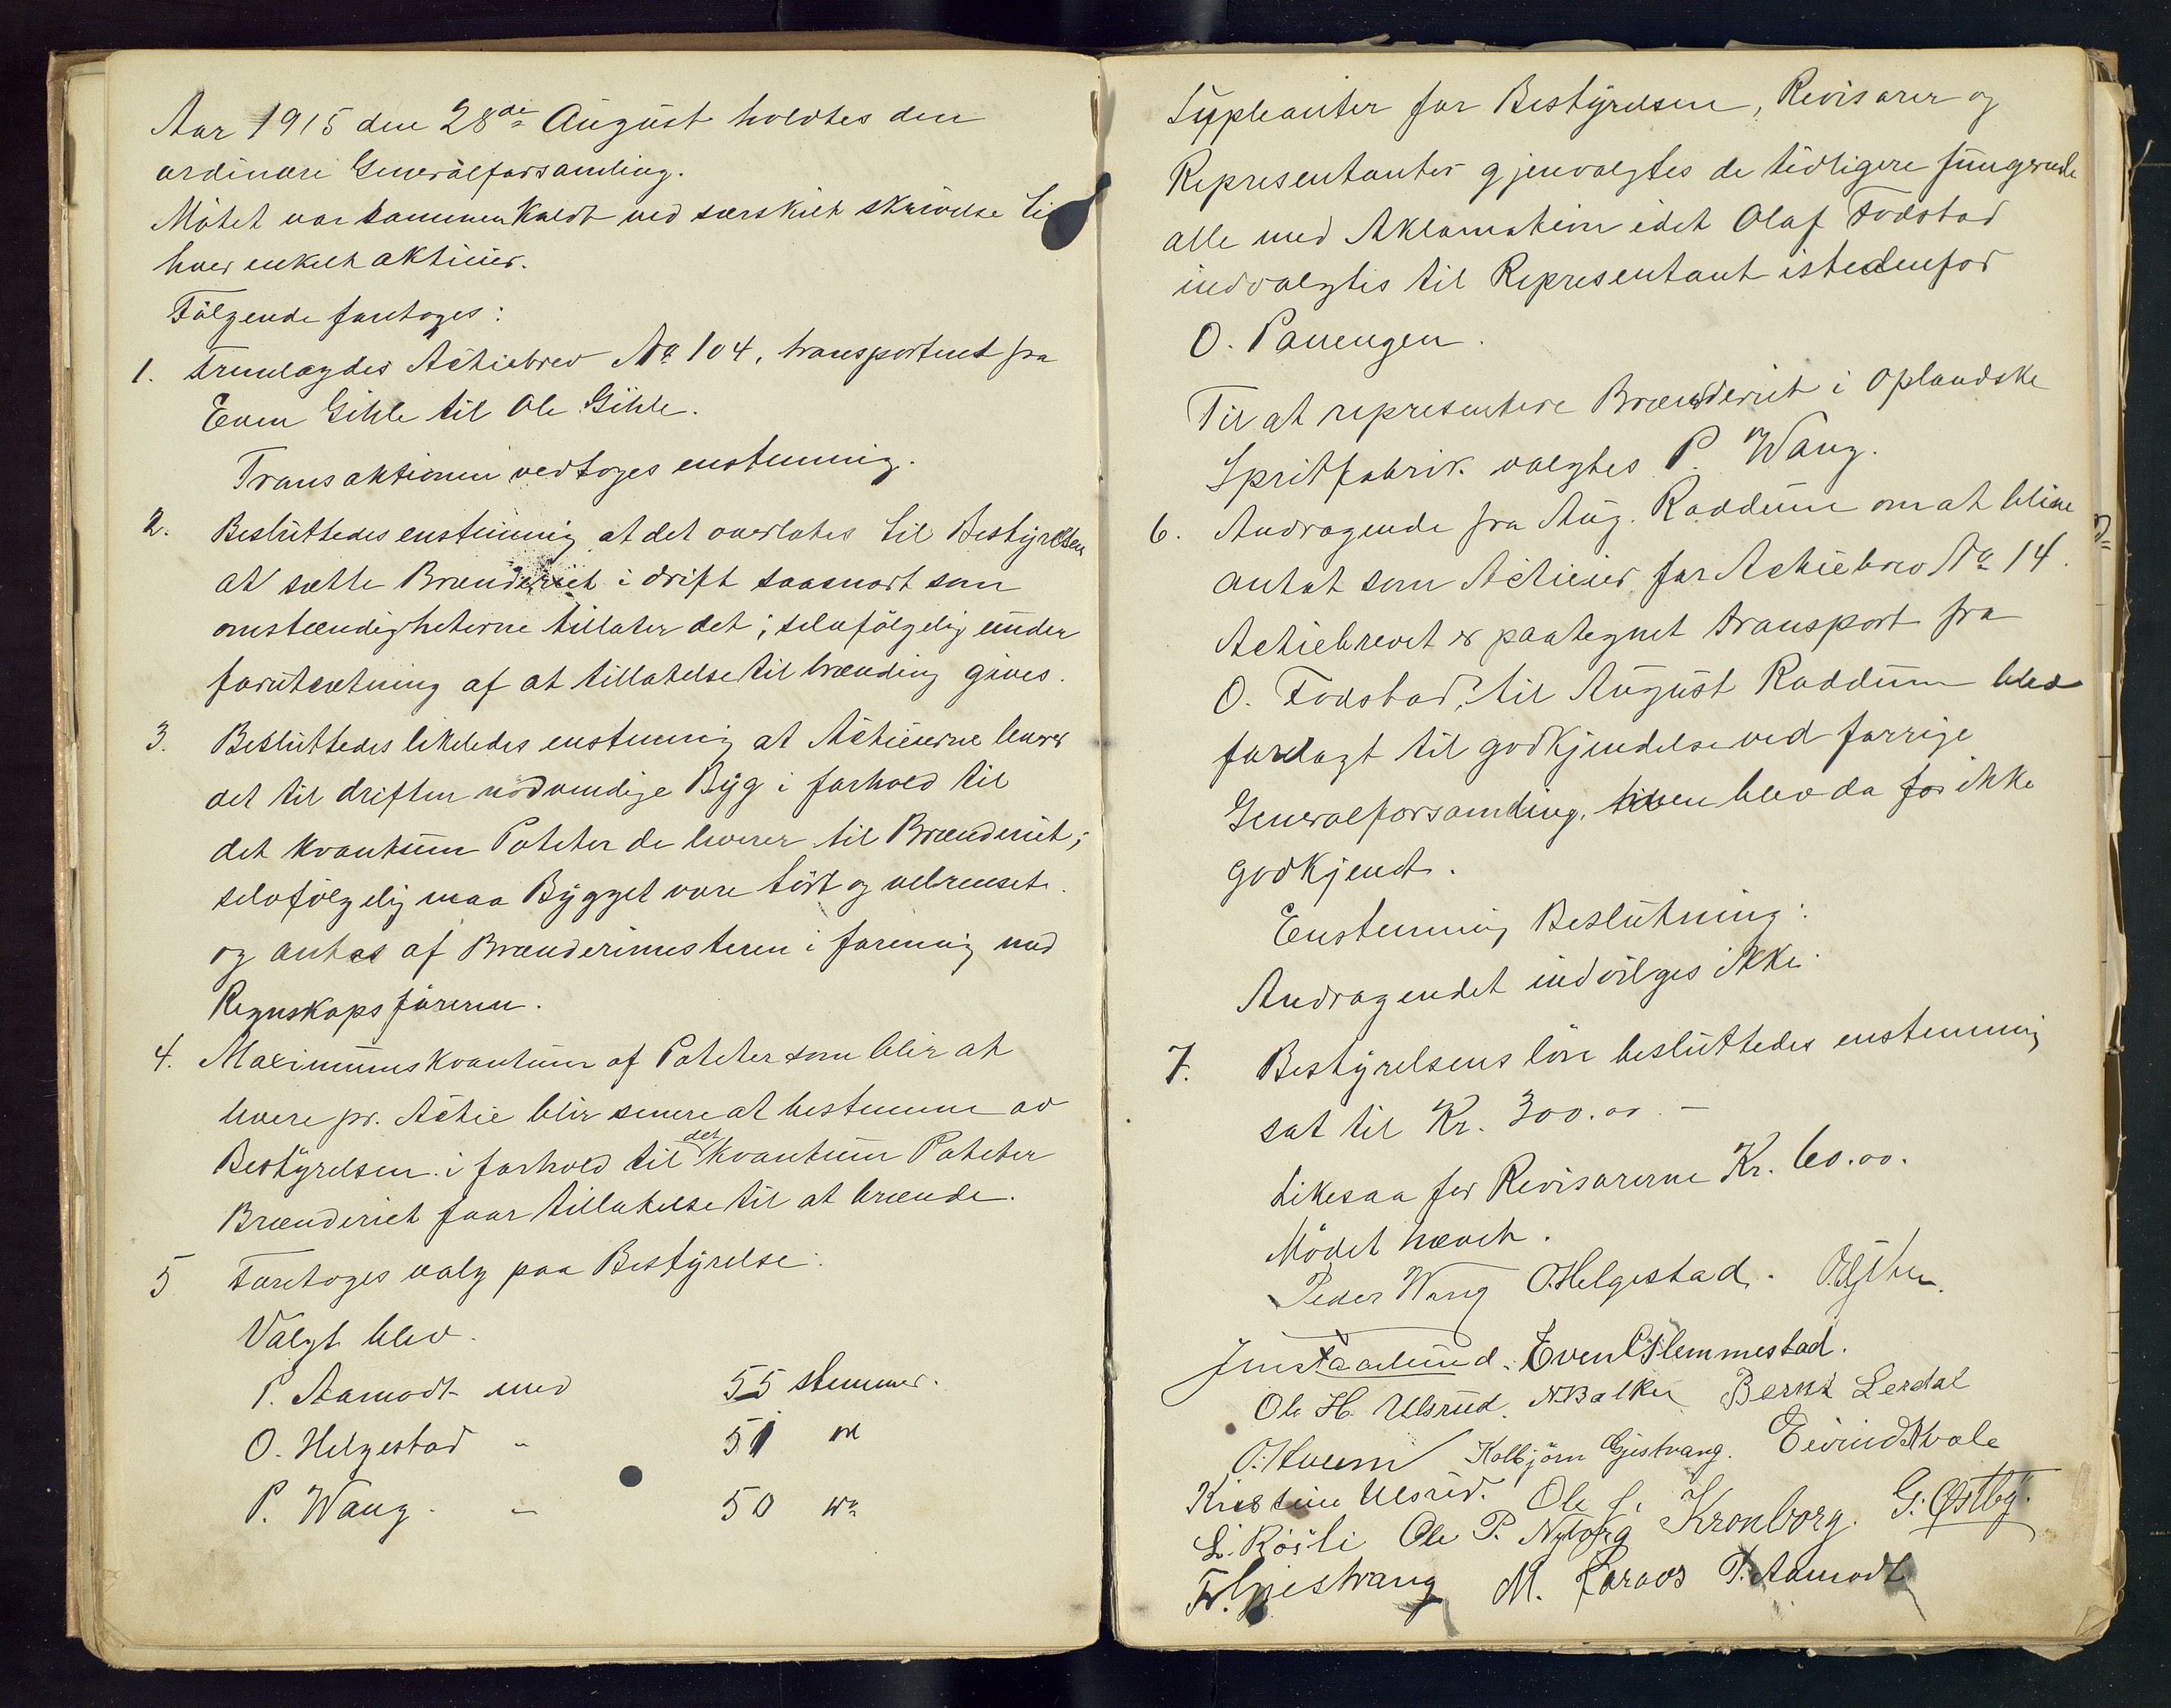 Aar 1915 den 28de August holdtes den
ordinære Generalforsamling.
Mötet var sammenkaldt ved særskilt skrivelse til
hver enkelt aktieier.
Fölgende foretoges:
1. Fremlagdes Actiebrev No 104, transporteret fra
Even Gihle til Ole Gihle.
Transaktionen vedtoges enstemmig.
2. Besluttedes enstemmig at det overlates til Bestyrelsen
at sætte Brænderiet i drift saasnart som
omstændigheterne tillater det; selvfölgelig under
forutsætning af at tillatelse til brænding gives.
3. Besluttedes likeledes enstemmig at Actieierne leverer
det til driften nödvendige Byg i forhold til
det kvantum Poteter de leverer til Brænderiet;
selvfölgelig maa Bygget være tört og velrenset
og antas af Brænderimesteren i forening med
Regnskapsföreren.
4. Maximumskvantum af Poteter som blir at
levere pr. Actie blir senere at bestemme av
Bestyrelsen i forhold til det kvantum Poteter
Brænderiet faar tillatelse til at brænde.
5 Foretoges valg paa Bestyrelse:
Valgt blev.
P. Aamodt med 55 stemmer.
O. Helgestad " 51
P. Wang. " 50
Supleanter for Bestyrelsen, Revisorer og
Representanter gjenvalgtes de tidligere fungerende
alle med Aklamation idet Olaf Fodstad
indvalgtes til Representant istedenfor
O. Panengen.
Til at representere Brænderiet i Oplandske
Spritfabrik valgtes P. Wang.
6. Andragende fra Aug. Raddum om at blive
antat som Actieier for Actiebrev No 14.
Actiebrevet er paategnet transport fra
O. Fodstad, til August Raddum blev
forelagt til godkjendelse ved forrige
Generalforsamling, blev da ikke
godkjendt.
Enstemmig Beslutning:
Andragendet indvilges ikke.
7. Bestyrelsens lön besluttedes enstemmig
sat til Kr. 300.00. –
Likesaa for Revisorerne Kr. 60.00.
Mödet hævet.
Peder Wang O Helgestad.
Even O Slemmestad.
Ole H. Ulsrud. N Balke Bernt Lerdal
Kolbjörn Gjestvang. Eivind Kvale
Kristine Ulsrud. Ole J. Kronborg. G. Østby.
L. Røsli Ole P. Nyborg
Fr. Gjestvang M. Faraos P. Aamodt